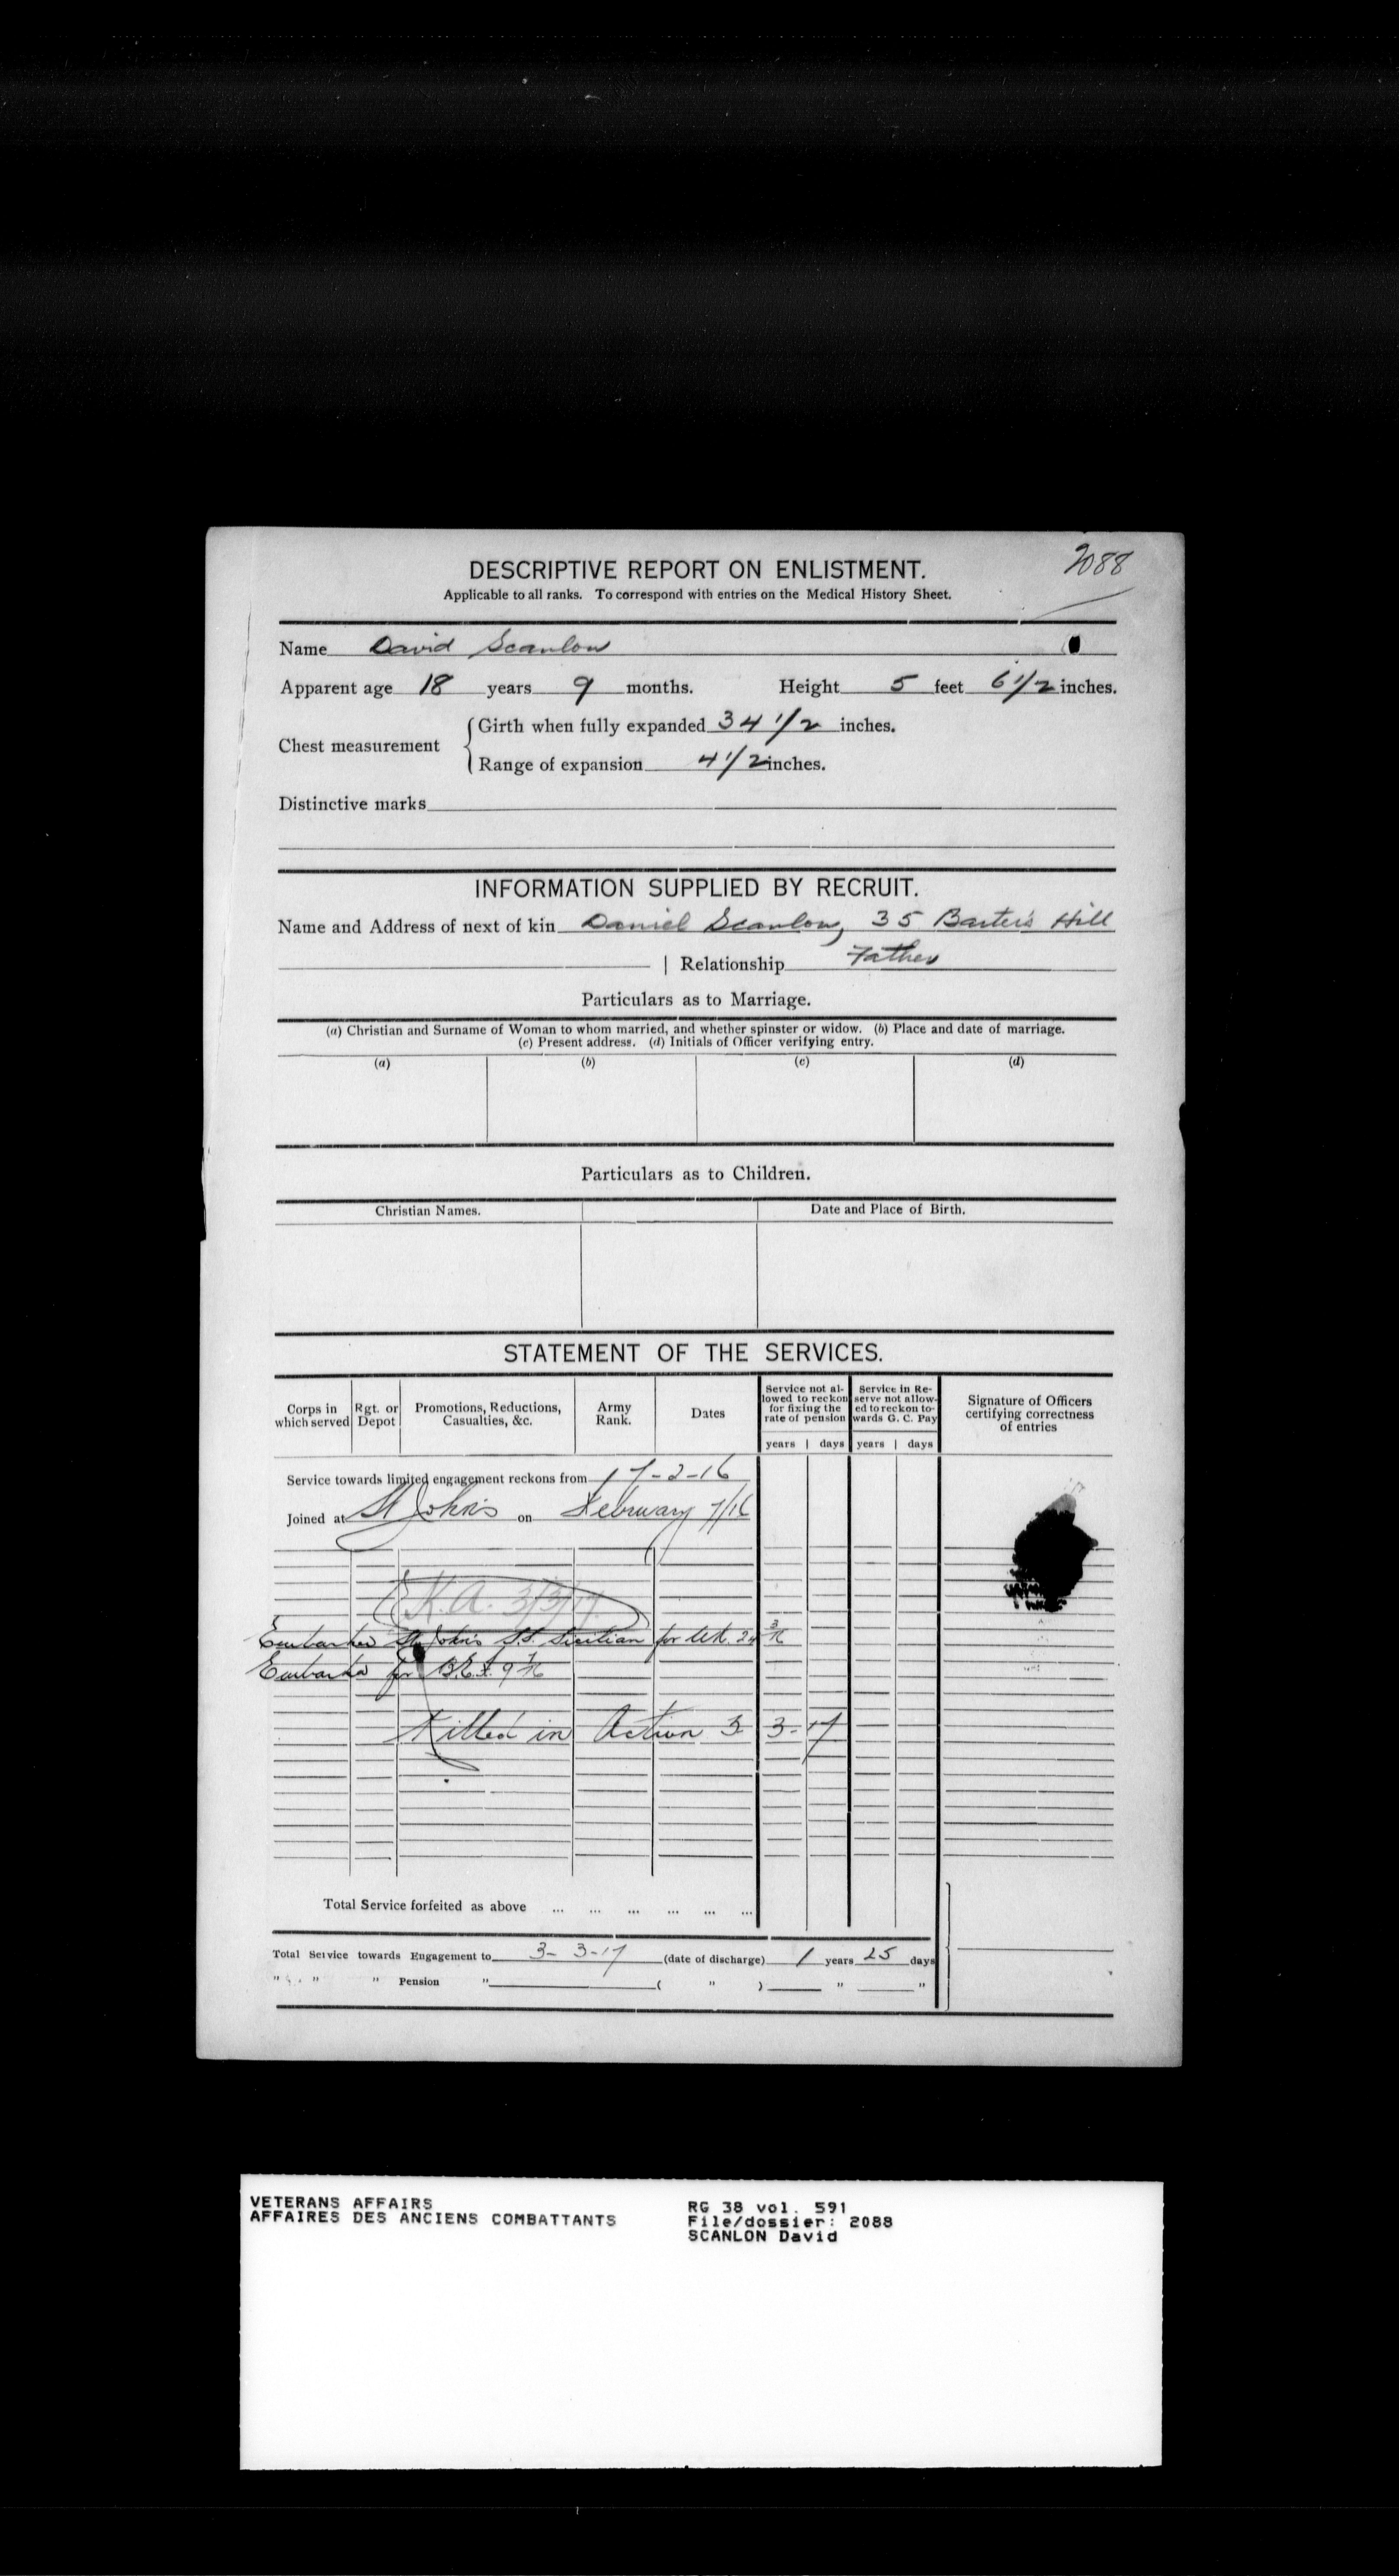 2088
DESCRIPTIVE REPORT ON ENLISTMENT.
Applicable to all ranks. To correspond with entries on the Medical History Sheet.
Name David Scanlon
Apparent age 18 years 9 months. Height 5 feet 6 1/2 inches.
Chest measurement { Girth when fully expanded 34 1/2 inches.
Range of expansion 4 1/2 inches.
Distinctive marks
INFORMATION SUPPLIED BY RECRUIT.
Name and Address of next of kin Daniel Scanlon, 35 Barter's Hill
| Relationship Father
Particulars as to Marriage.
(a) Christian and Surname of Woman to whom married, and whether spinster or widow. (b) Place and date of marriage.
(c) Present address. (d) Initials of Officer verifying entry.
(a) (b) (c) (d)
Particulars as to Children.
Christian Names. Date and Place of Birth.
STATEMENT OF THE SERVICES.
Corps in which served Rgt. or Depot Promotions, Reductions, Casualties, &c. Army Rank. Dates Service not allowed to reckon for fixing the rate of pension Service in Reserve not allowed to reckon towards G. C. Pay Signature of Officers certifying correctness of entries
years | days years | days
Service towards limited engagement reckons from 7-2-16
Joined at St John's on February 7/16
K.A. 3/3/17.
Embarked St John's S.S. Sicilian for U.K. 24 3/16
Embarked for B.E.F. 9 7/16
Killed in Action 3-3-17
Total Service forfeited as above ... ... ... ... ... ...
Total Service towards Engagement to 3-3-17 (date of discharge) 1 years 25 days
" " " Pension " ( " ) " "
VETERANS AFFAIRS RG 38 vol. 591
AFFAIRES DES ANCIENS COMBATTANTS File/dossier: 2088
SCANLON David